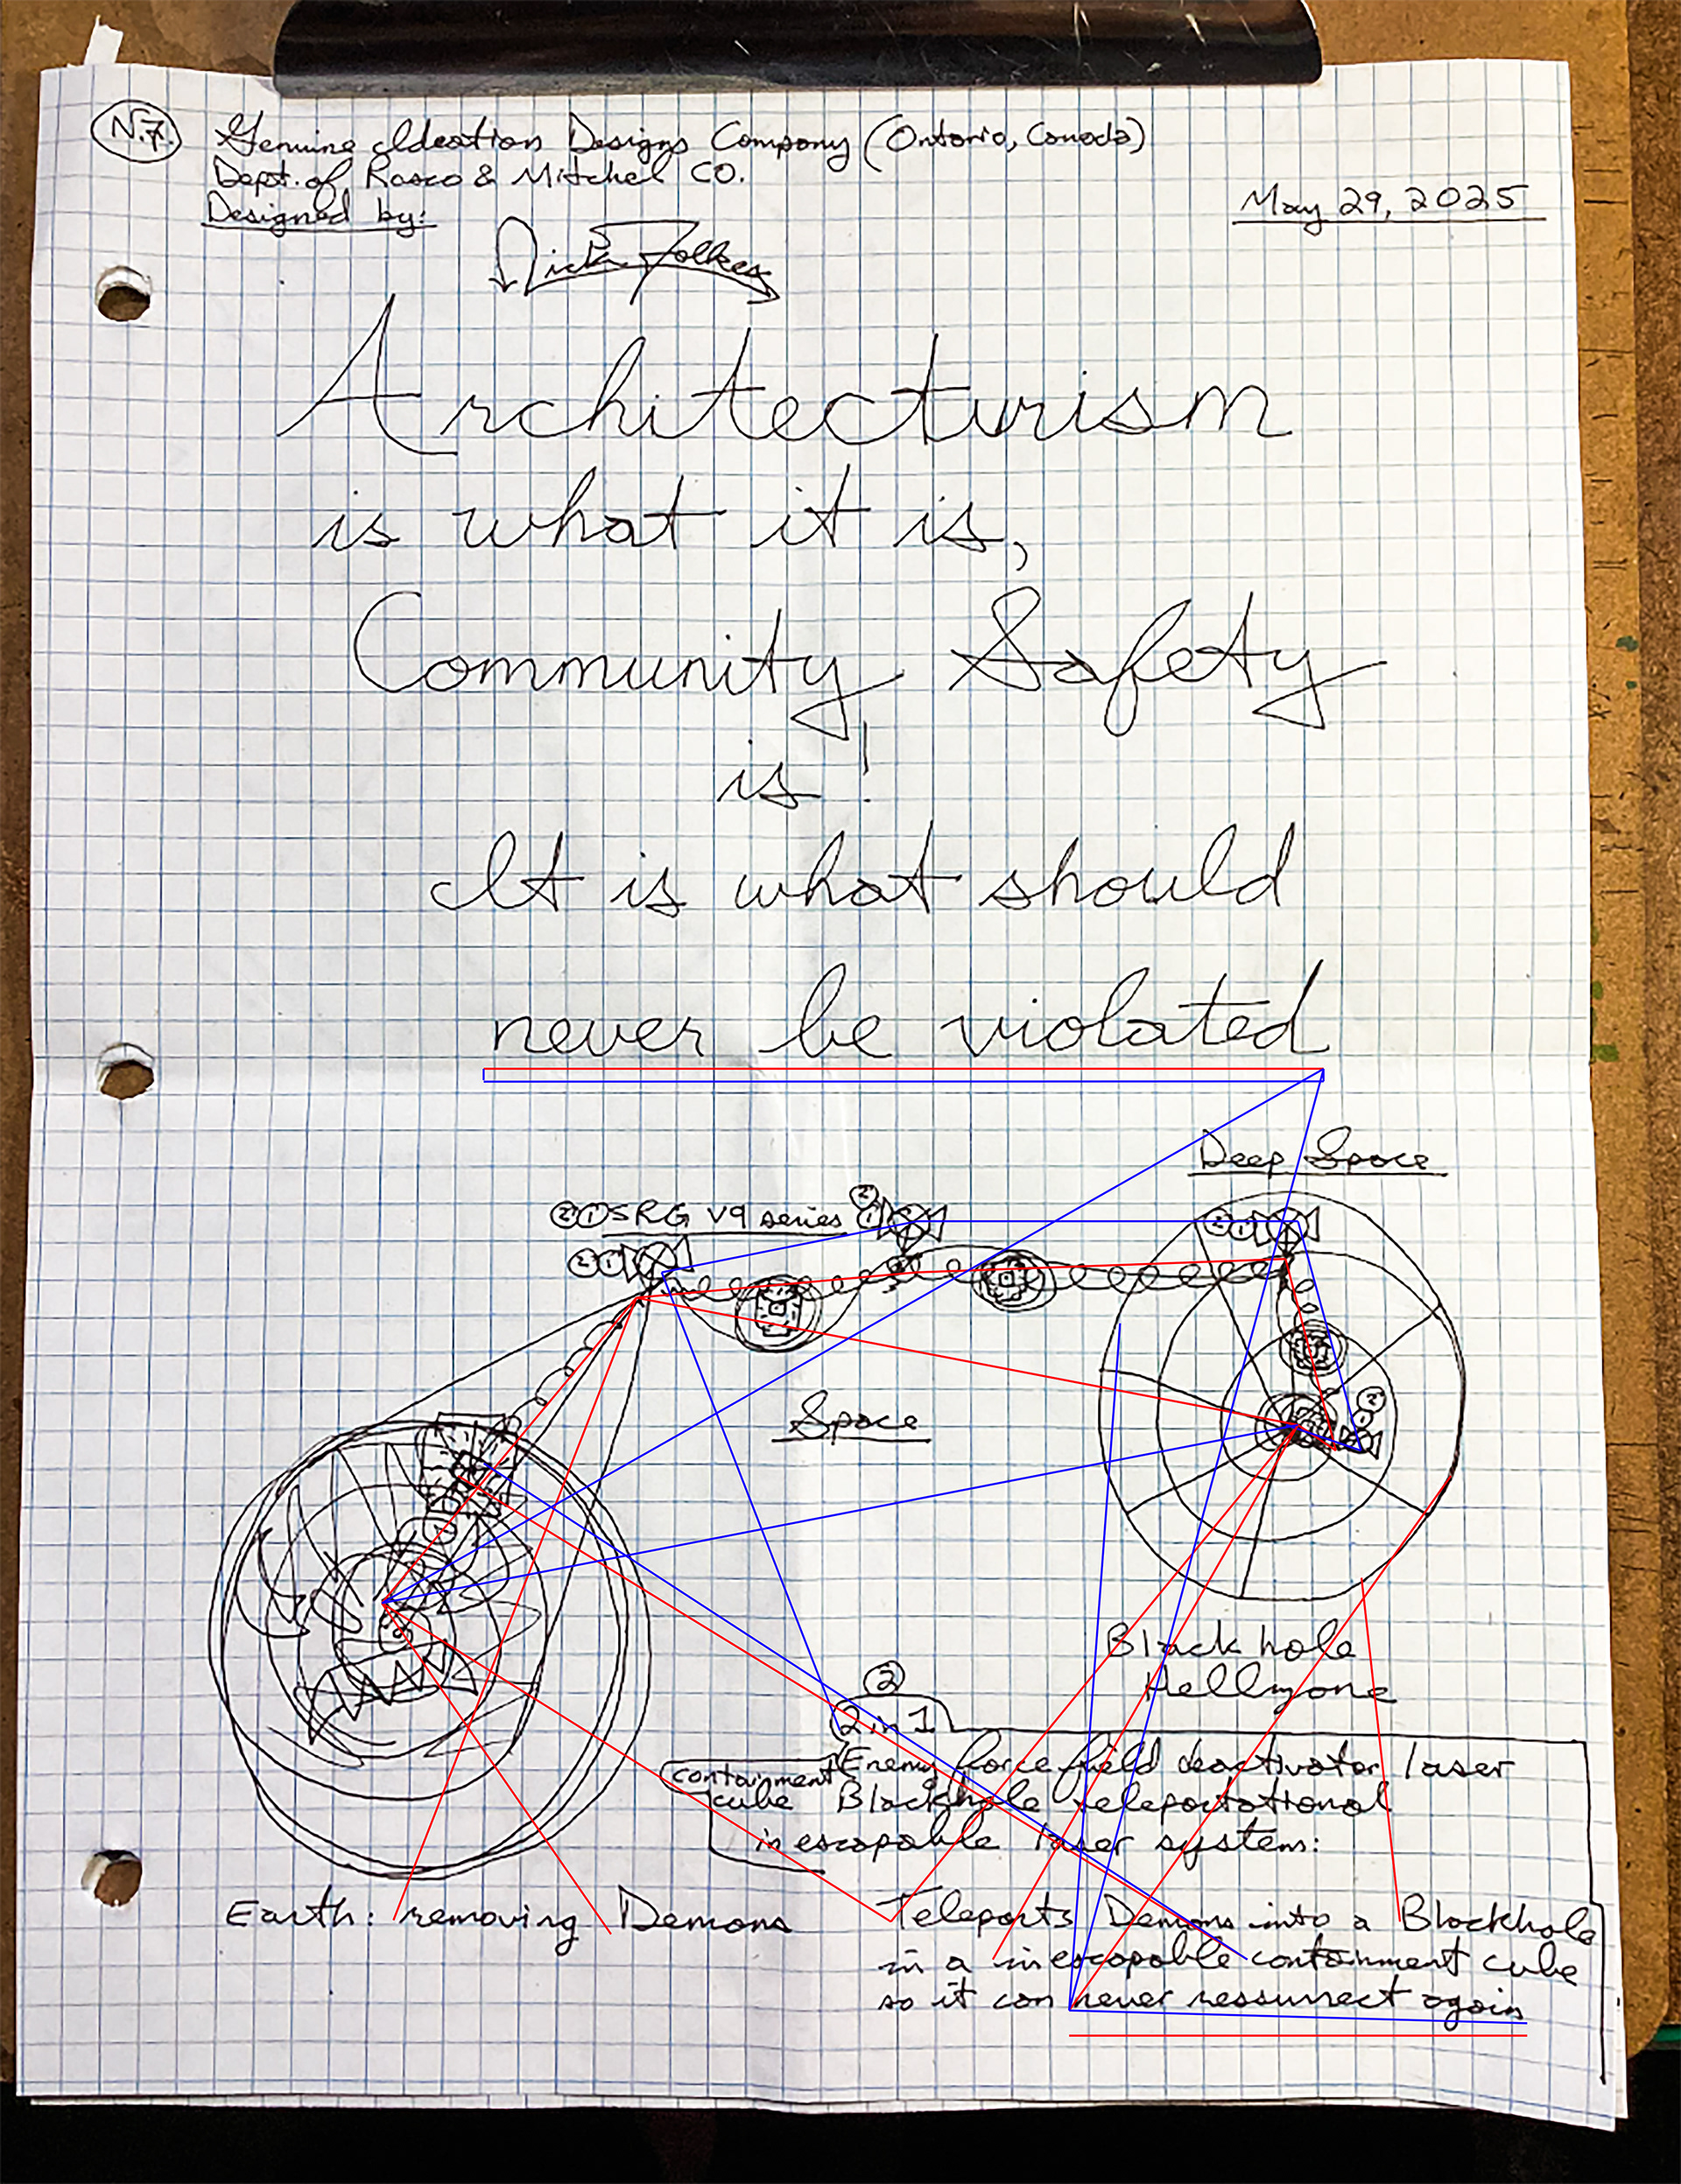 N.7. Genuine Ideation Designs Company (Ontario, Canada)
Dept. of Rasco & Mitchel CO.
Designed by:
May 29, 2025
Nick Folkes
Architecturism
is what it is,
Community Safety
is!
It is what should
never be violated
Deep Space
②① SRG V9 series ②①
②①
②①
②①
Space
Black hole
Hellzone
②
2 in 1
Enemy forcefield deactivator laser
containment cube
Blackhole teleportational
inescapable laser system:
Earth: removing Demons
Teleports Demons into a Blackhole
in a inescapable containment cube
so it can never ressurrect again